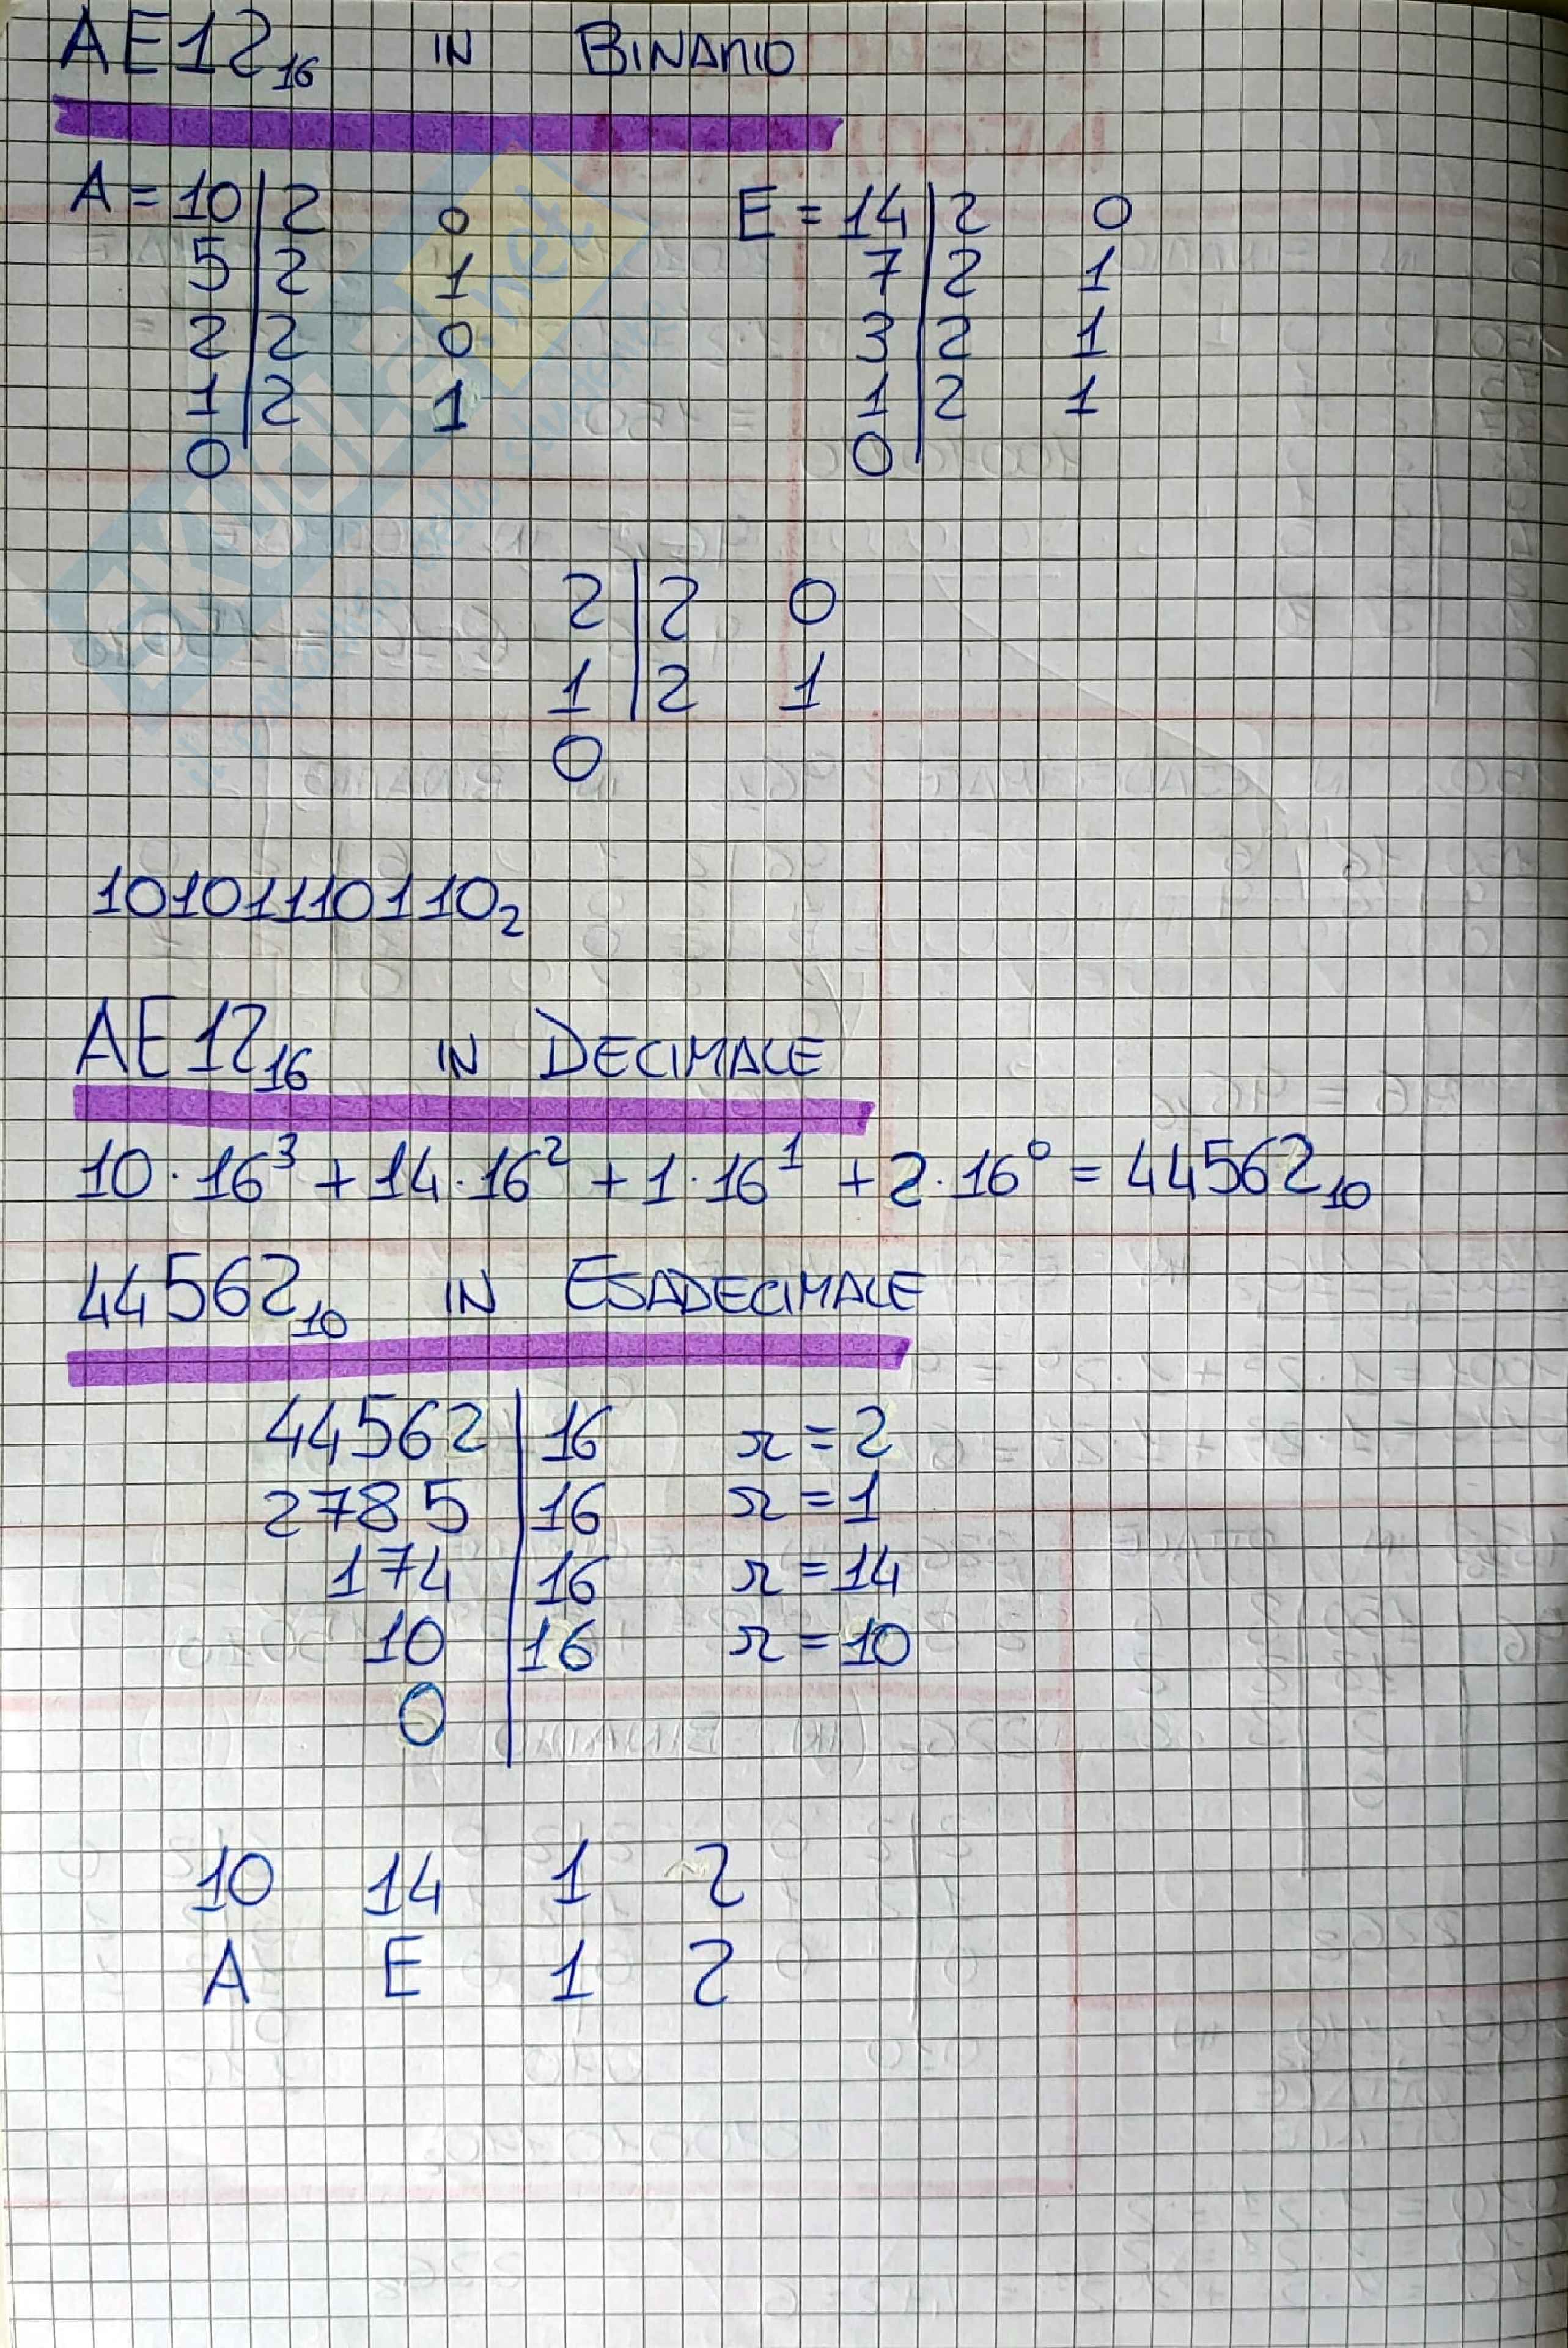 AE12₁₆ IN BINARIO
A = 10 | 2 0
5 | 2 1
2 | 2 0
1 | 2 1
0
E = 14 | 2 0
7 | 2 1
3 | 2 1
1 | 2 1
0
2 | 2 0
1 | 2 1
0
10101110110₂
AE12₁₆ IN DECIMALE
10·16³ + 14·16² + 1·16¹ + 2·16⁰ = 44562₁₀
44562₁₀ IN ESADECIMALE
44562 | 16 r = 2
2785 | 16 r = 1
174 | 16 r = 14
10 | 16 r = 10
0
10 14 1 2
A E 1 2